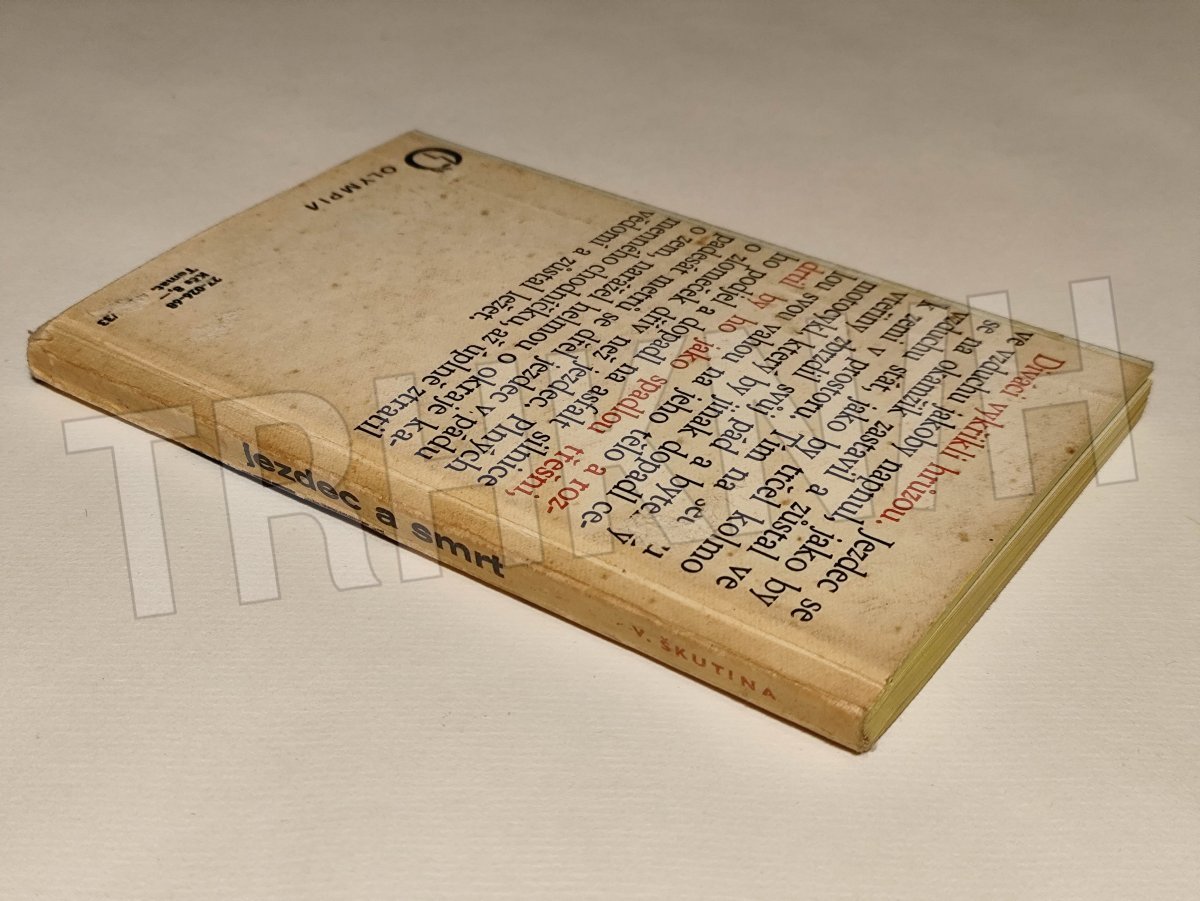 Diváci vykřikli hrůzou. Jezdec se
ve vzduchu jakoby napnul, jako by
se na okamžik zastavil a zůstal ve
vzduchu stát, jako by trčel kolmo
k zemi v prostoru. Tím na
vteřiny zbrzdil svůj pád a
motocykl, který by jinak dopadl ce-
lou svou vahou na jeho tělo a roz-
drtil by ho jako spadlou třešni,
ho podjel a dopadl na asfalt silnice
o zlomeček dřív než jezdec. Plných
padesát metrů se dřel jezdec v pádu
o zem, narážel helmou o okraje ka-
menného chodníčku, až úplně ztratil
vědomí a zůstal ležet.
OLYMPIA
27-024-68
Kčs 8,—
Temat.
/33
jezdec a smrt
V. ŠKUTINA
TRHKNIH